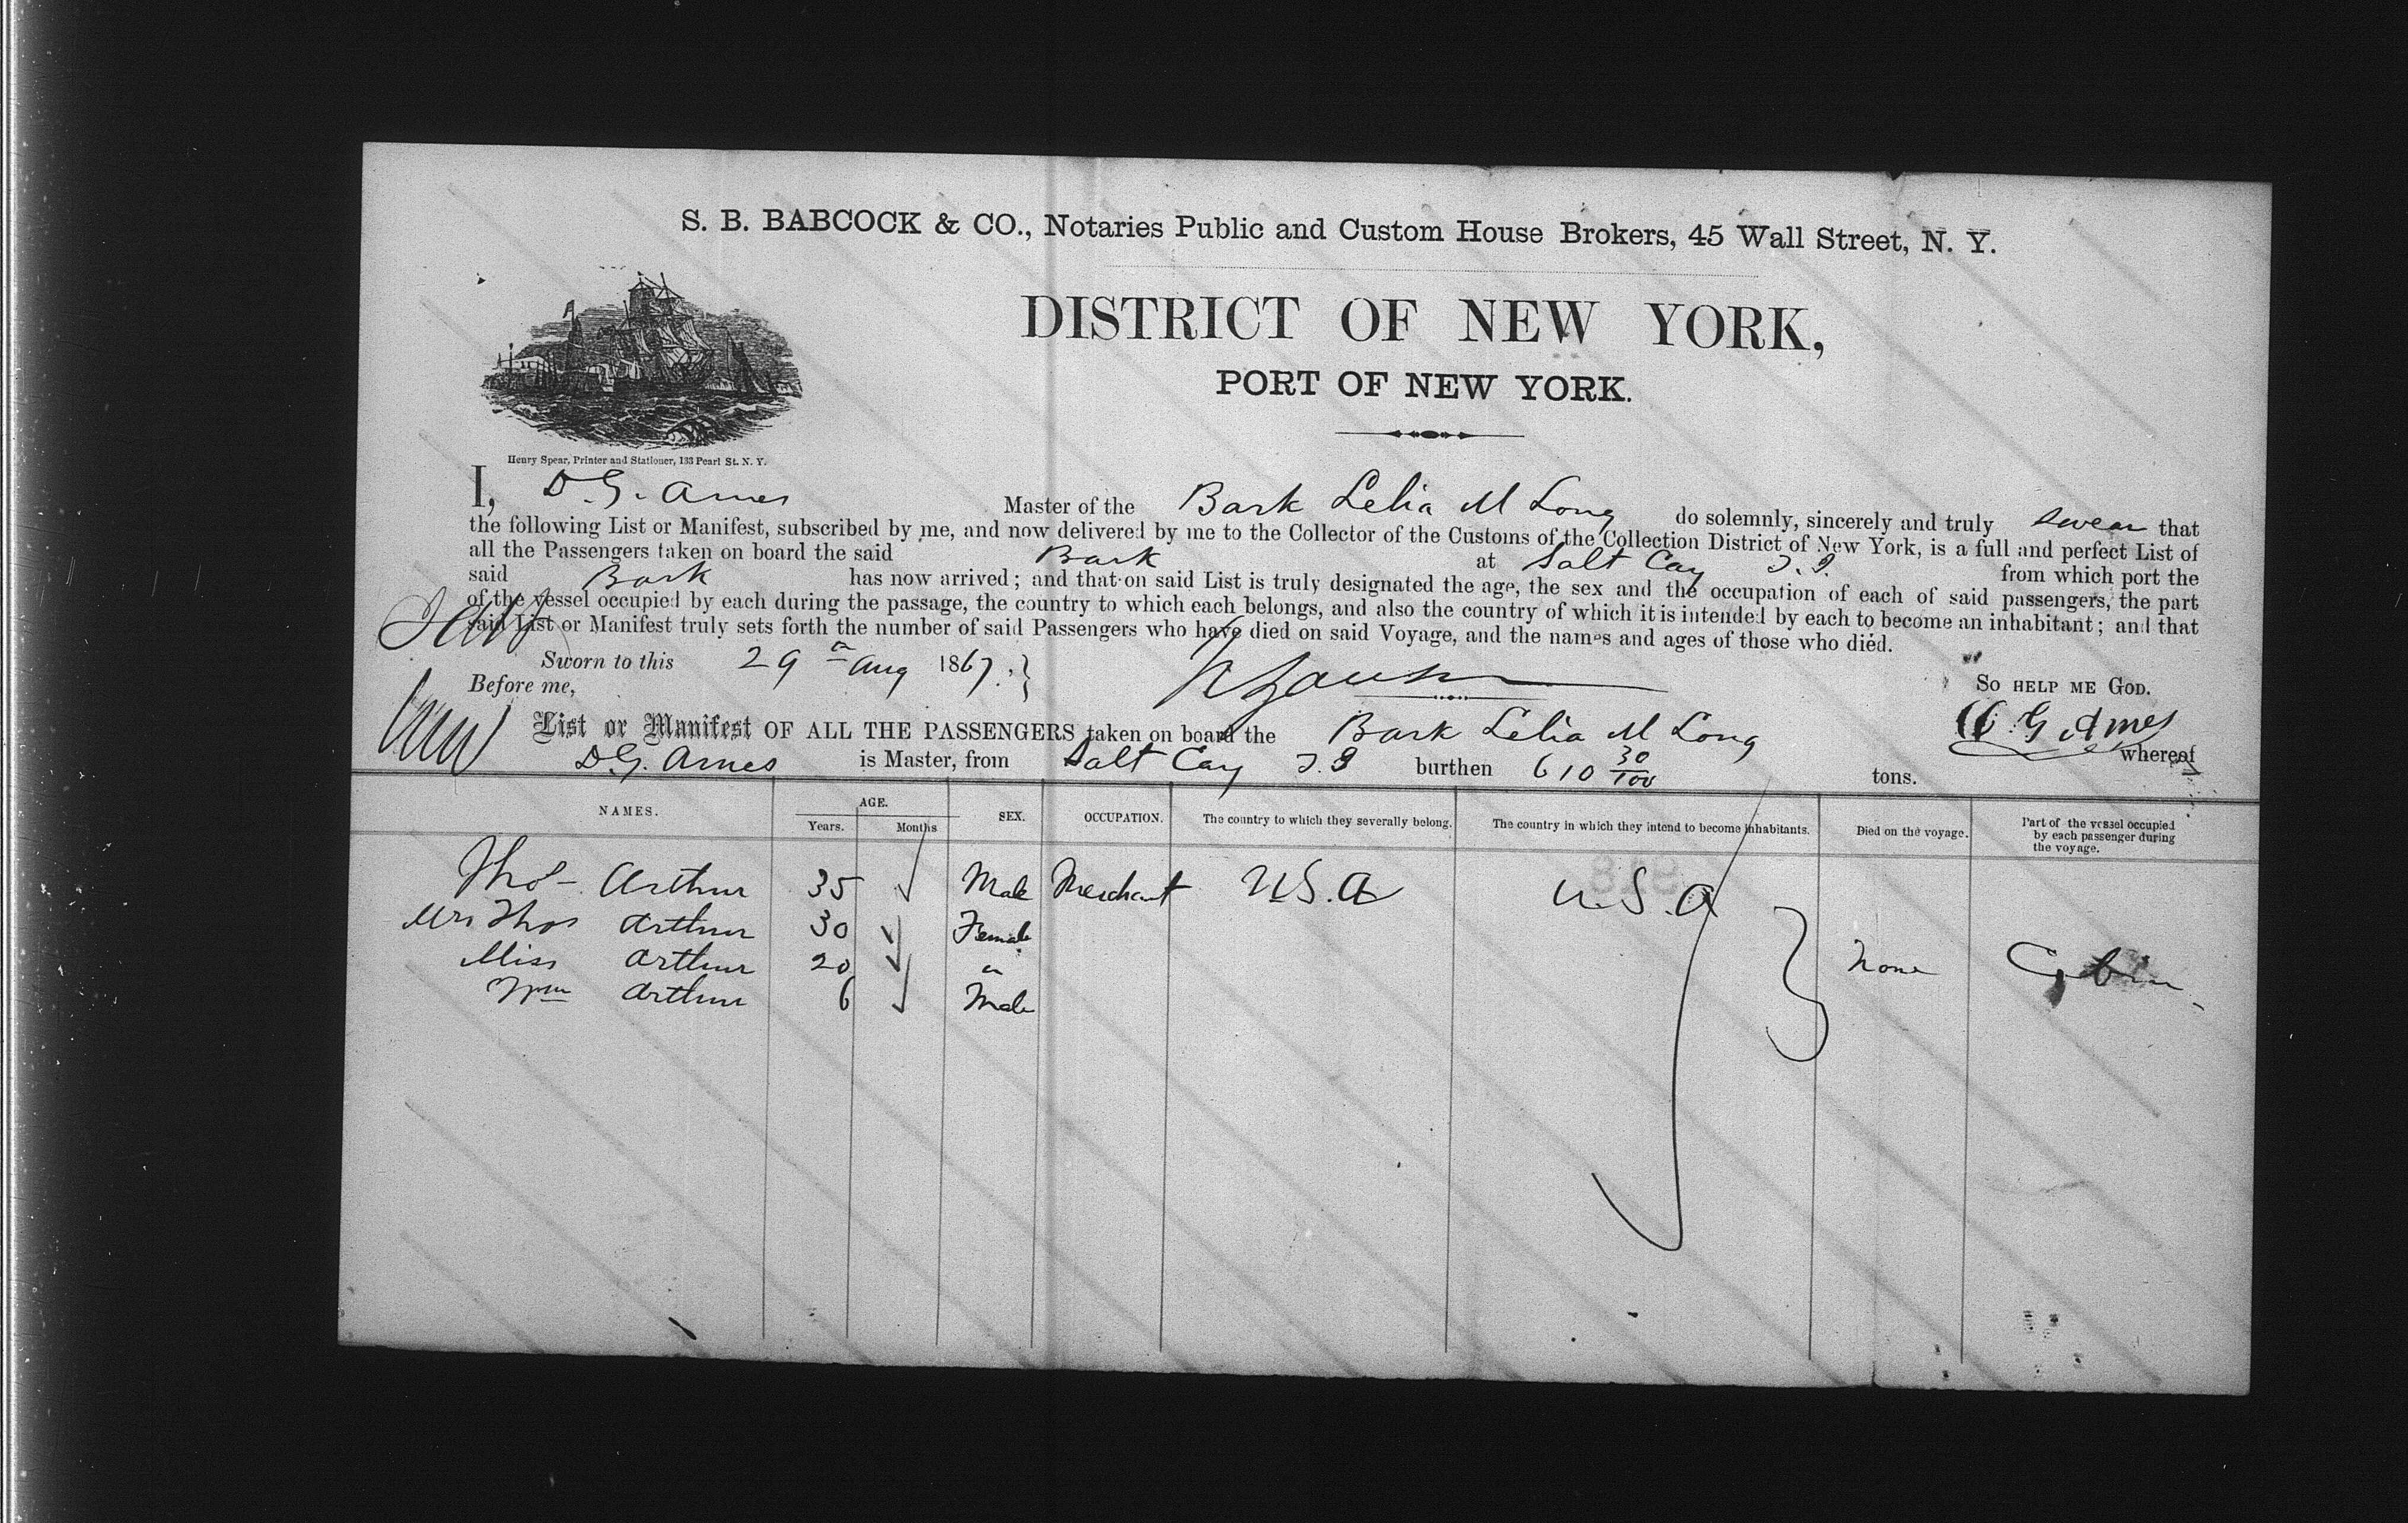 S. B. BABCOCK & CO., Notaries Public and Custom House Brokers, 45 Wall Street, N. Y.
DISTRICT OF NEW YORK,
PORT OF NEW YORK.
Henry Spear, Printer and Stationer, 133 Pearl St. N. Y.
I, D. G. Ames Master of the Bark Lelia M Long do solemnly, sincerely and truly swear that
the following List or Manifest, subscribed by me, and now delivered by me to the Collector of the Customs of the Collection District of New York, is a full and perfect List of
all the Passengers taken on board the said Bark at Salt Cay T. I. from which port the
said Bark has now arrived; and that on said List is truly designated the age, the sex and the occupation of each of said passengers, the part
of the vessel occupied by each during the passage, the country to which each belongs, and also the country of which it is intended by each to become an inhabitant; and that
said List or Manifest truly sets forth the number of said Passengers who have died on said Voyage, and the names and ages of those who died.
Sworn to this 29th Aug 1867.
So HELP ME GOD.
Before me,
G Ames
List or Manifest OF ALL THE PASSENGERS taken on board the Bark Lelia M Long whereof
D. G. Ames is Master, from Salt Cay T. I burthen 610 30/100 tons.
NAMES. AGE. Years. Months SEX. OCCUPATION. The country to which they severally belong. The country in which they intend to become inhabitants. Died on the voyage. Part of the vessel occupied by each passenger during the voyage.
Thos Arthur 35 Male Merchant U.S.A U.S.A
Mrs Thos Arthur 30 Female
Miss Arthur 20 " None Cabin
Wm Arthur 6 Male